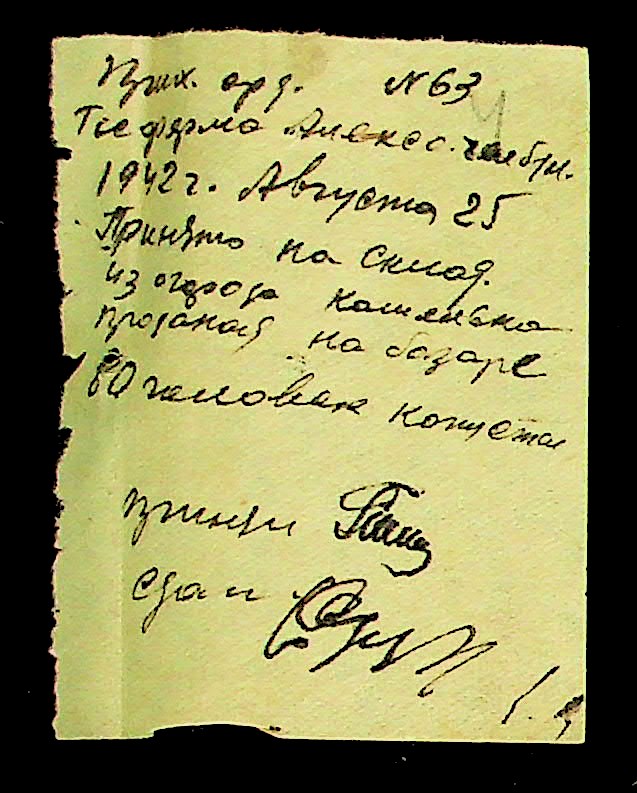 Прих. орд. N 63
Госферма Алексо.
1942 г. Августа 25
Принято на склад.
из огорода
проданая на базаре
80 головак капуста
принял
сдал